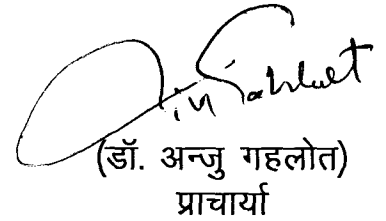 (डॉ. अन्जु गहलोत)
प्राचार्या